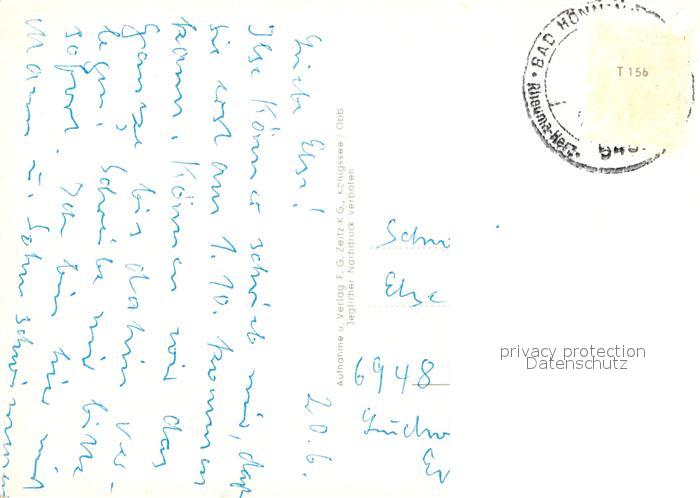 20.6.
Liebe Else!
Ilse Körner schrieb mir, daß
sie erst am 1.10. kommen
kann. Können wir das
ganze bis dahin ver-
legen, schreibe mir bitte
sofort. Ich bin hier mit
Mann u. Sohn schwimmen
Aufnahme u. Verlag F. G. Zeitz K G., Königssee / Obb
Jeglicher Nachdruck verboten
BAD HÖNN
Rheuma-Herz-
T 156
Schw
Else
6948
privacy protection
Datenschutz